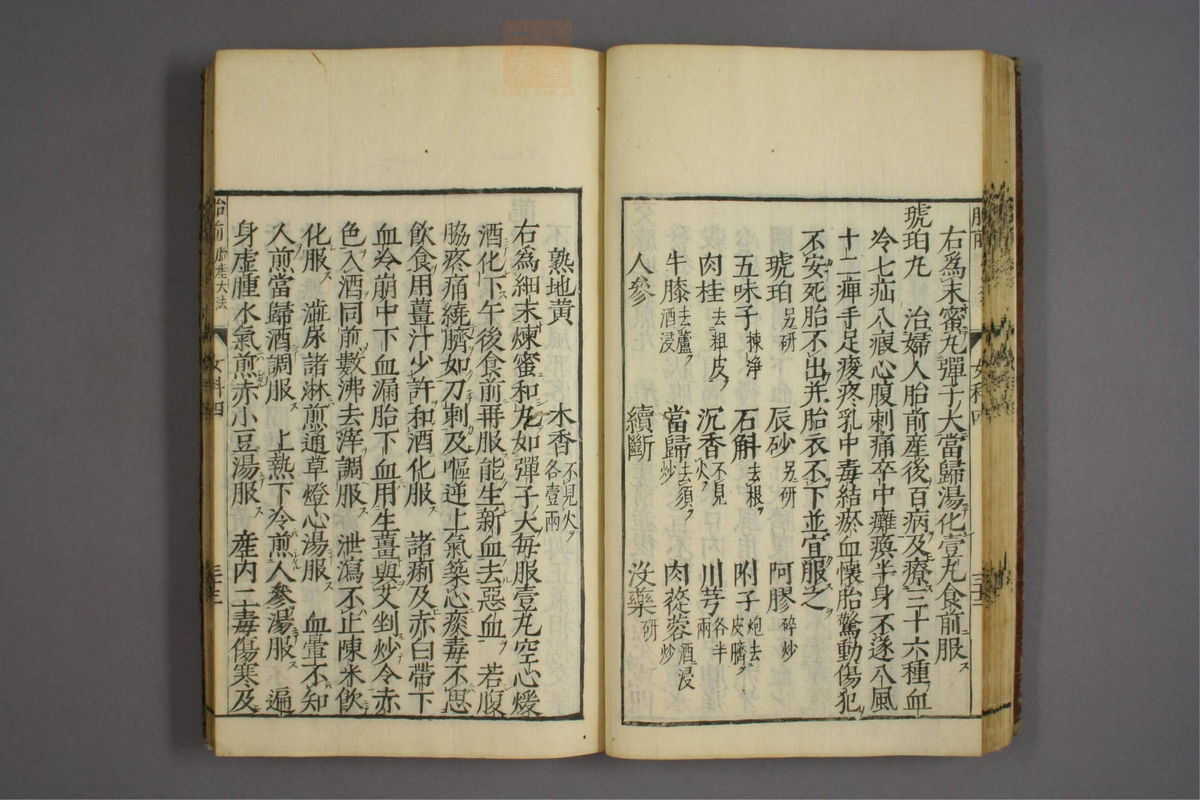 右爲末蜜丸彈子大當歸湯化壹丸食前服ス
琥珀丸　治婦人胎前産後百病及療三十六種血
冷七疝八瘕心腹刺痛卒中癱瘓半身不遂八風
十二痺手足痠疼乳中毒結瘀血懷胎驚動傷犯
不安死胎不出并胎衣不下並宜服之
琥珀另研　辰砂另研　阿膠碎炒
五味子揀浄　石斛去根　附子炮去皮臍
肉桂去粗皮　沉香不見火　川芎各半兩
牛膝去蘆酒浸　當歸去須炒　肉蓯蓉酒浸炒
人參　續斷　沒藥研
女科四
熟地黄　木香不見火各壹兩
右爲細末煉蜜和丸如彈子大毎服壹丸空心煖
酒化下午後食前再服能生新血去惡血　若腹
脇疼痛繞臍如刀刺及嘔逆上氣築心痰毒不思
飲食用薑汁少許和酒化服　諸痢及赤白帶下
血冷崩中下血漏胎下血用生薑與艾剉炒令赤
色入酒同煎數沸去滓調服ス　泄瀉不止陳米飲
化服ス　澁尿諸淋煎通草燈心湯服ス　血暈不知
人煎當歸酒調服ス　上熱下冷煎人參湯服ス　遍
身虚腫水氣煎赤小豆湯服ス　産内二毒傷寒及
胎前 臨産大法　女科四　三十三